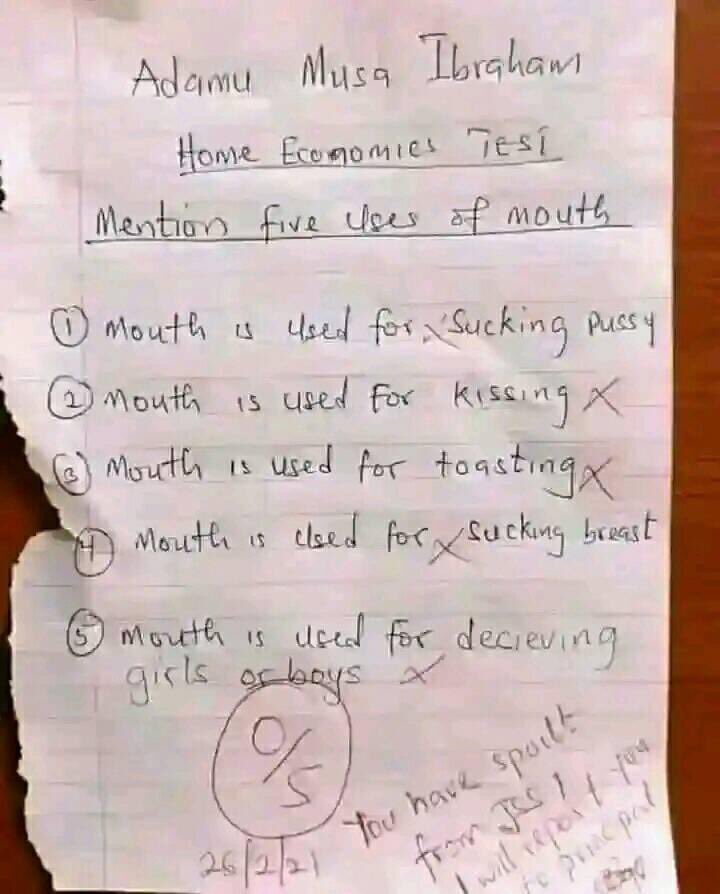 Adamu Musa Ibraham
Home Economics Test
Mention five Uses of mouth
① Mouth is used for x Sucking pussy
② Mouth is used for kissing x
③ Mouth is used for toasting x
④ Mouth is used for x sucking breast
⑤ Mouth is used for decieving
girls or boys x
0/5
26/2/21
You have spoilt
from JSS 1
I will report you
to principal